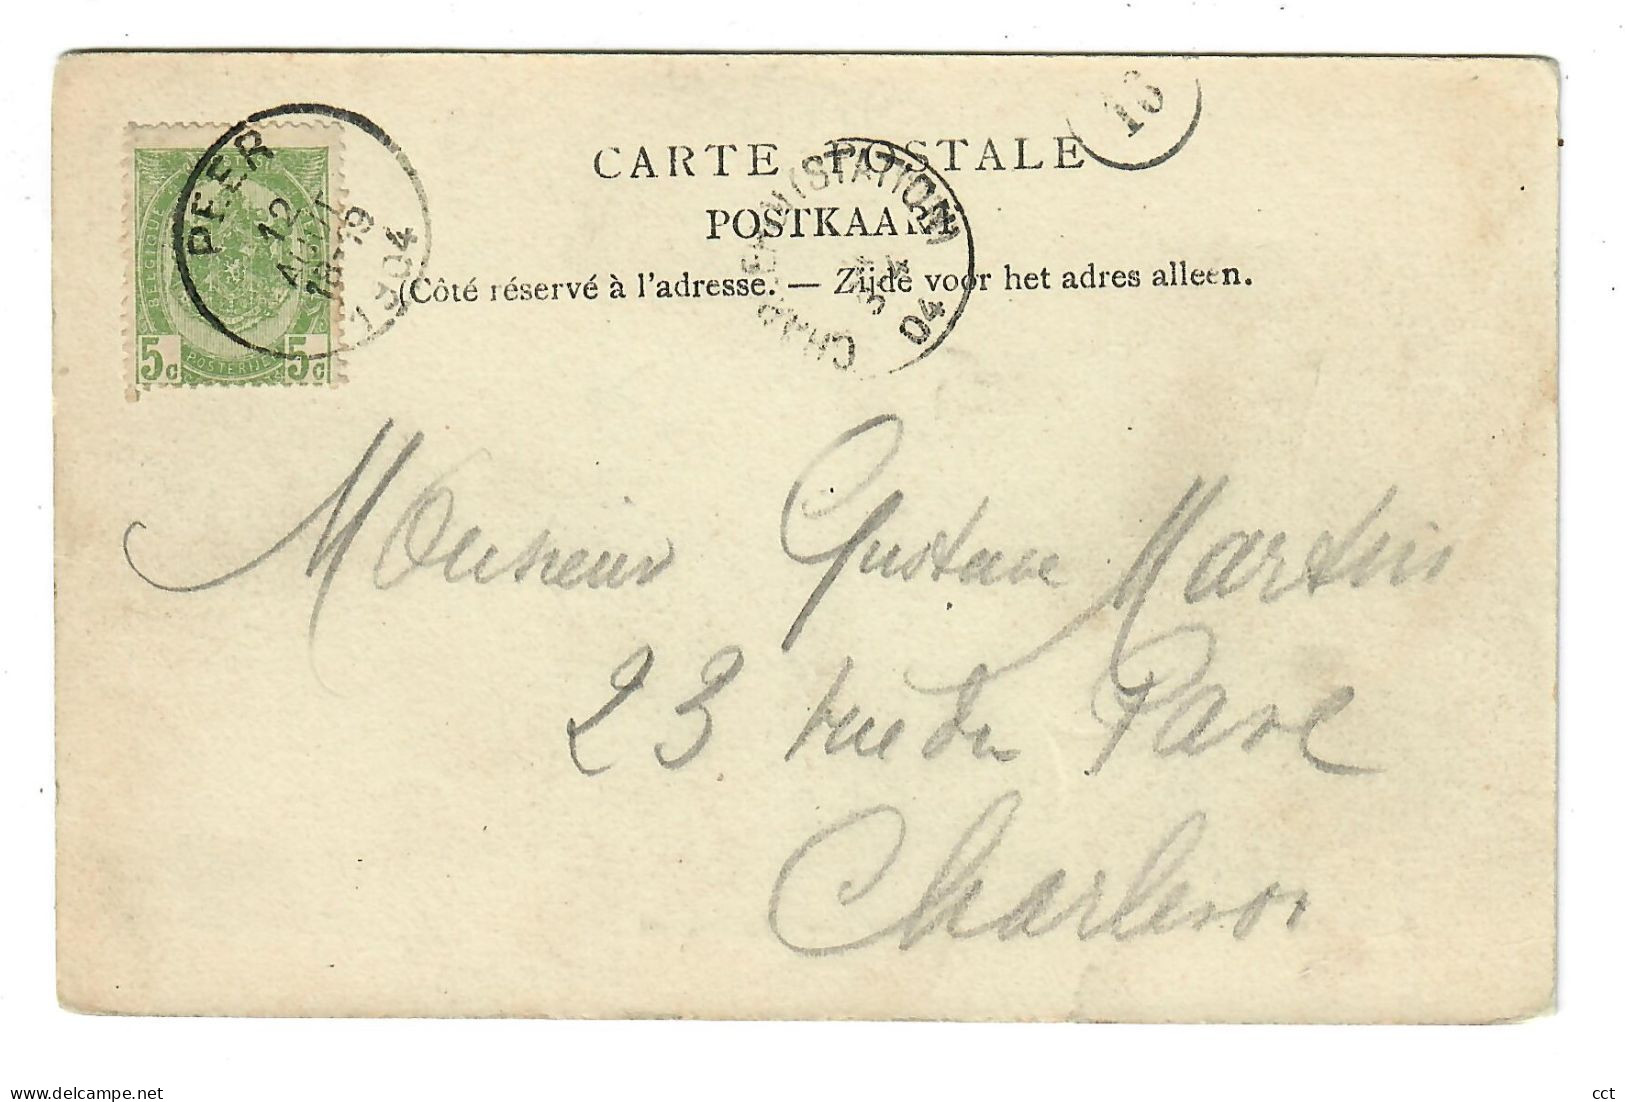 CARTE POSTALE
POSTKAART
(Côté réservé à l'adresse. — Zijde voor het adres alleen.
PEER
12
AOUT
18-19
1904
BELGIQUE
POSTERIJEN
5c 5c
(STATION)
04
16
Monsieur Gustave Martin
23 rue du Parc
Charleroi
delcampe.net
cct